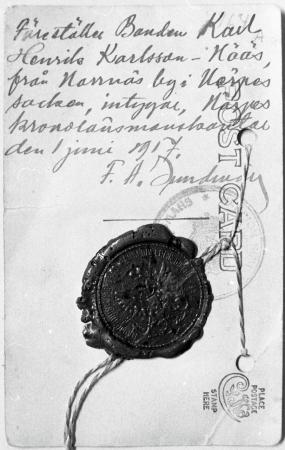 Föreställer Bonden Karl
Henrik Karlsson – Nääs,
från Norrnäs by i Närpes
socken, intygar, Närpes
kronolänsmanskontor
den 1 juni 1917.
F. A.
POST CARD
PLACE
POSTAGE
STAMP
HERE